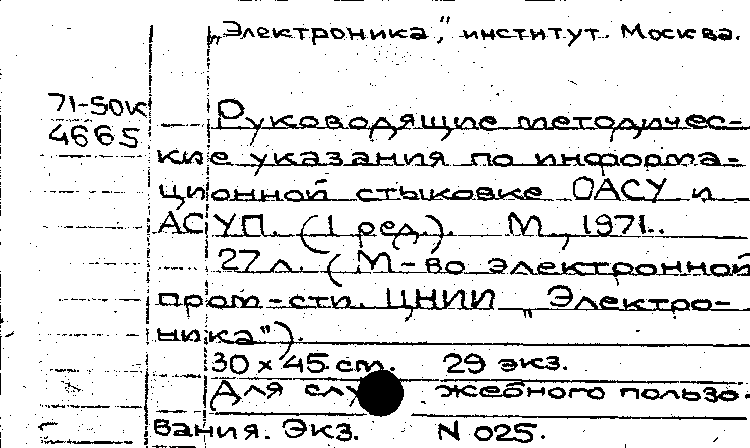 „Электроника”, институт. Москва.
71-50к
4665
Руководящие методичес-
кие указания по информа-
ционной стыковке ОАСУ и
АСУП. (1 ред.). М., 1971.
27 л. (М-во электронной
пром-сти. ЦНИИ „Электро-
ника").
30 x 45 см. 29 экз.
Для служебного пользо-
вания. Экз. N 025.